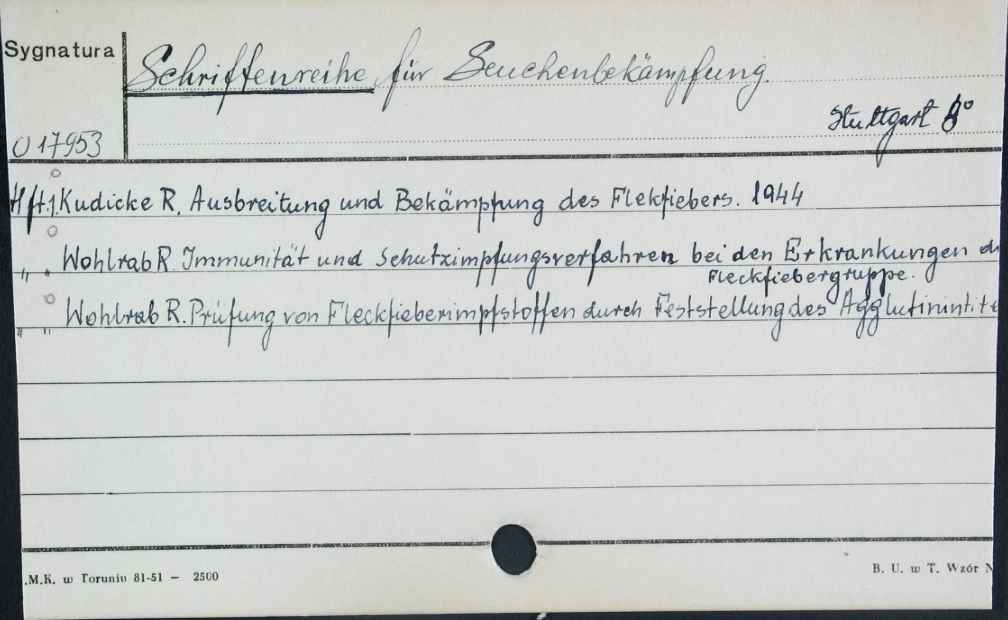 Sygnatura
Schriffenreihe für Seuchenbekämpfung.
Stuttgart 8°
O 17953
Hft.1. Kudicke R. Ausbreitung und Bekämpfung des Flekfiebers. 1944
" " Wohlrab R. Immunität und Schutzimpfungsverfahren bei den Erkrankungen d
Fleckfiebergruppe.
" " Wohlrab R. Prüfung von Fleckfieberimpfstoffen durch Feststellung des Agglutinintite
.M.K. w Toruniu 81-51 — 2500
B. U. w T. Wzór N